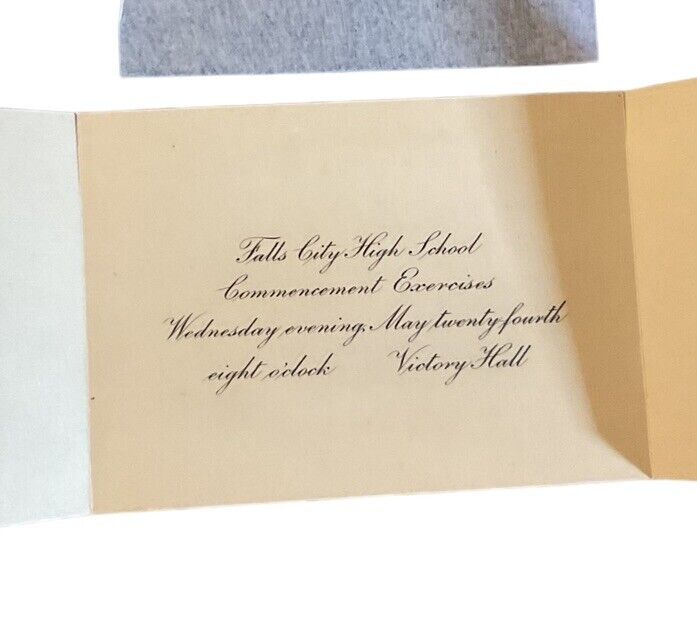 Falls City High School
Commencement Exercises
Wednesday evening, May twenty-fourth
eight o'clock Victory Hall